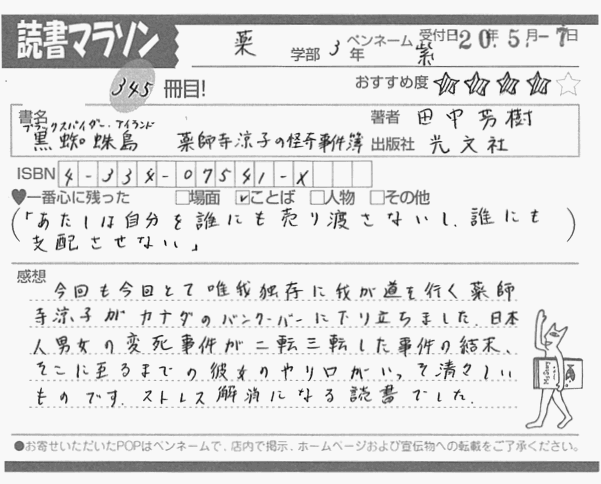 読書マラソン
薬 学部 3年 ペンネーム 紫 受付日 20年5月-7日
345 冊目! おすすめ度 ★★★★☆
書名 ブラックスパイダー・アイランド 著者 田中芳樹
黒蜘蛛島 薬師寺涼子の怪奇事件簿 出版社 光文社
ISBN 4-334-07541-X
♥一番心に残った □場面 ☑ことば □人物 □その他
(「あたしは自分を誰にも売り渡さないし、誰にも
支配させない」)
感想
今回も今回とて唯我独存に我が道を行く薬師
寺涼子がカナダのバンクーバーに下り立ちました。日本
人男女の変死事件が二転三転した事件の結末、
そこに至るまでの彼女のやり口がいっそ清々しい
ものです。ストレス解消になる読書でした。
●お寄せいただいたPOPはペンネームで、店内で掲示、ホームページおよび宣伝物への転載をご了承ください。